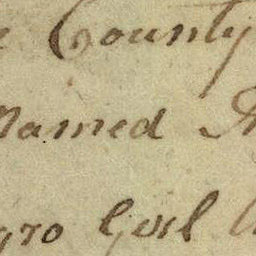 County
Named
gro Girl